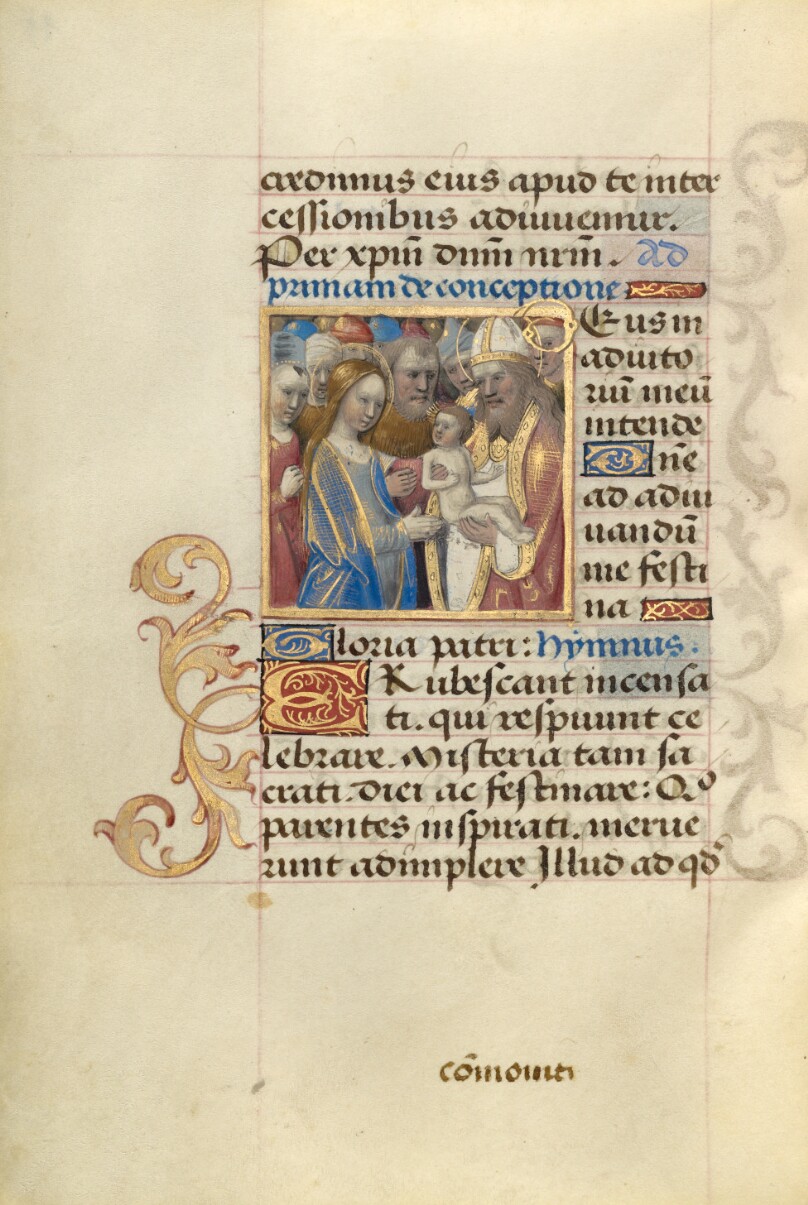 credimus eius apud te inter
cessionibus adiuuemur.
Per xp̄m dn̄m nr̄m. ad
primam de conceptione
Eus in
adiuto
riū meū
intende
Dn̄e
ad adiu
uandū
me festi
na
Gloria patri: hymnus.
ERubescant incensa
ti. qui respuunt ce
lebrare. Misteria tam sa
crati. diei ac festinare: Qᵒ
parentes inspirati. merue
runt adimplere Illud ad qd̄
cōmoniti